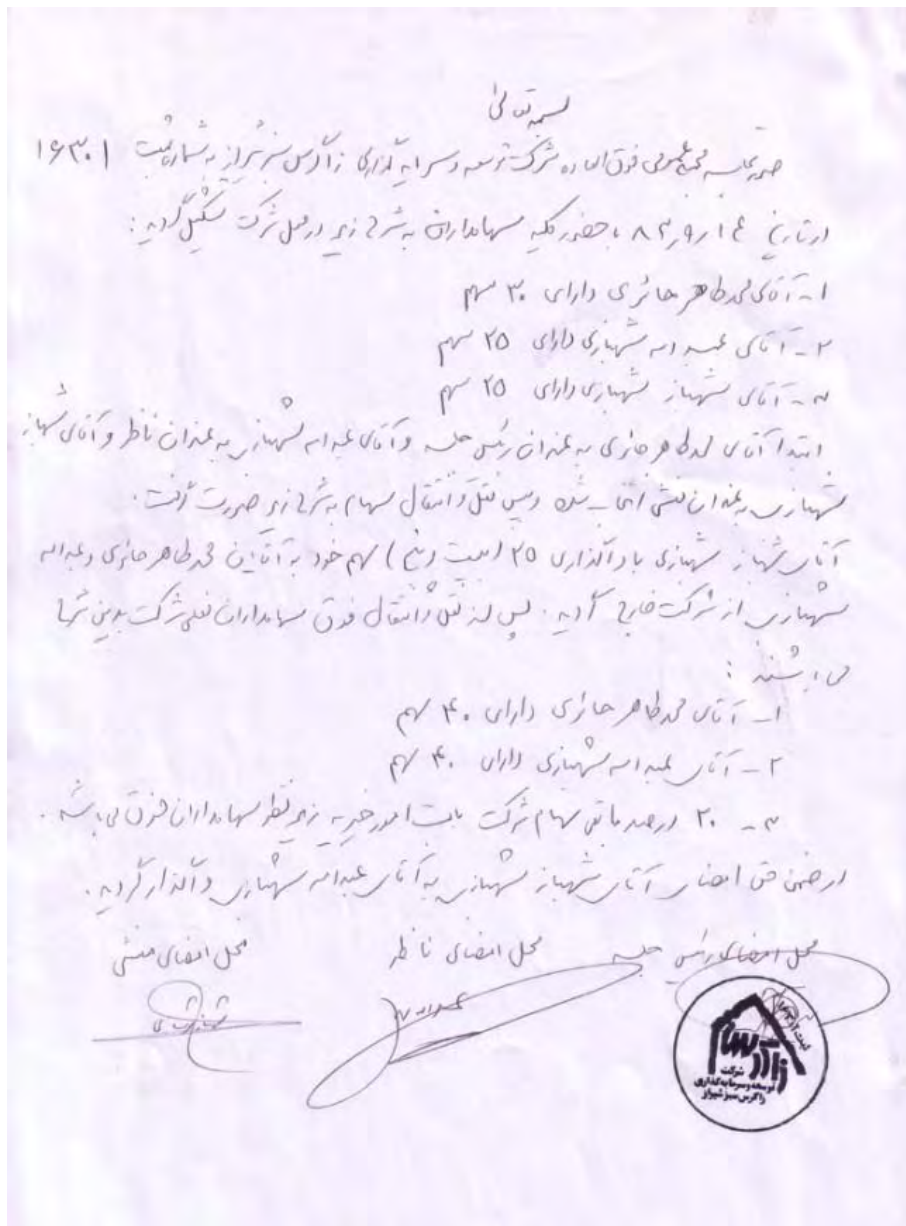 بسمه تعالی
صورتجلسه مجمع عمومی فوق العاده شرکت توسعه و سرمایه گذاری زاگرس سبز شیراز به شماره ثبت ۱۶۳۰۱
در تاریخ ۸۲/۹/۱۴ با حضور کلیه سهامداران به شرح زیر در محل شرکت تشکیل گردید:
۱- آقای محمد طاهر حائزی دارای ۳۰ سهم
۲- آقای عبداله شهبازی دارای ۲۵ سهم
۳- آقای شهباز شهبازی دارای ۲۵ سهم
ابتدا آقای محمد طاهر حائزی به عنوان رئیس جلسه و آقای عبداله شهبازی به عنوان ناظر و آقای شهباز
شهبازی به عنوان منشی انتخاب شده و سپس نقل و انتقال سهام به شرح زیر صورت گرفت.
آقای شهباز شهبازی با واگذاری ۲۵ (بیست و پنج) سهم خود به آقایان محمد طاهر حائزی و عبداله
شهبازی از شرکت خارج گردید. پس از نقل و انتقال فوق سهامداران فعلی شرکت بدین شرح
می باشند:
۱- آقای محمد طاهر حائزی دارای ۴۰ سهم
۲- آقای عبداله شهبازی دارای ۴۰ سهم
۳- ۲۰ درصد مابقی سهام شرکت بابت امور خیریه زیر نظر سهامداران فوق می باشد.
در ضمن حق امضای آقای شهباز شهبازی به آقای عبداله شهبازی واگذار گردید.
محل امضای رئیس جلسه محل امضای ناظر محل امضای منشی
زاگرس
شرکت
توسعه و سرمایه گذاری
زاگرس سبز شیراز